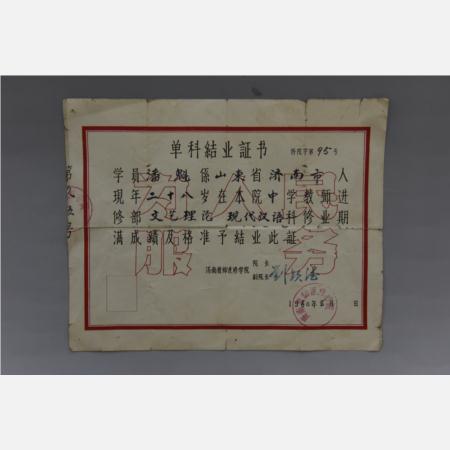 单科結业証书
师院字第95号
学員潘勉係山东省济南市人
現年二十八岁在本院中学教师进
修部文艺理论 现代汉语科修业期
满成績及格准予結业此証
为人民
服务
院长
济南教师进修学院
副院长
1960年8月 日